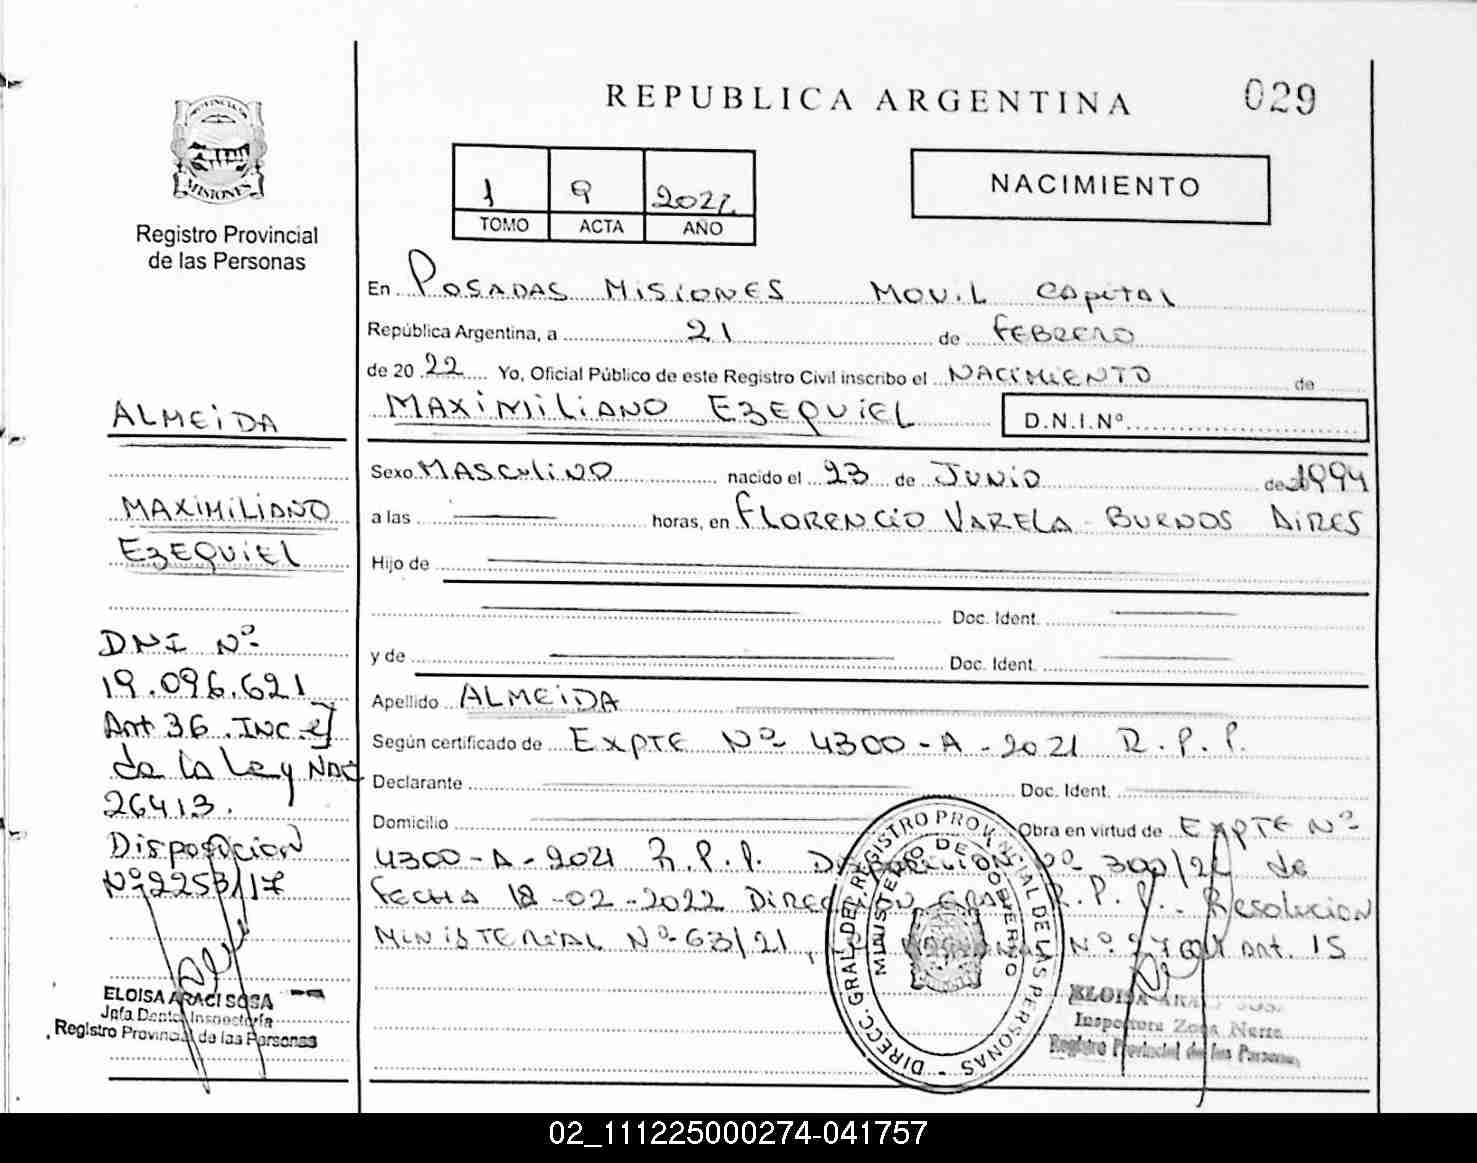 REPUBLICA ARGENTINA
029
PROVINCIA DE
MISIONES
Registro Provincial
de las Personas
1 9 2022
TOMO ACTA AÑO
NACIMIENTO
En POSADAS MISIONES MOVIL CAPITAL
República Argentina, a 21 de FEBRERO
de 20 22 Yo, Oficial Público de este Registro Civil inscribo el NACIMIENTO de
MAXIMILIANO EZEQUIEL D.N.I.Nº
Sexo MASCULINO nacido el 23 de JUNIO de 1994
a las horas, en FLORENCIO VARELA - BUENOS AIRES
Hijo de
Doc. Ident.
y de Doc. Ident.
Apellido ALMEIDA
Según certificado de EXPTE Nº 4300-A-2021 R.P.P.
Declarante Doc. Ident.
Domicilio Obra en virtud de EXPTE Nº
4300-A-2021 R.P.P. DISPOSICION Nº 300/22 de
FECHA 18-02-2022 DIRECCION GRAL R.P.P. Resolucion
MINISTERIAL Nº 63/21, Nº Art. 15
ALMEIDA
MAXIMILIANO
EZEQUIEL
DNI Nº
19.096.621
Art 36. INC.
de la Ley NAC
26413.
Disposicion
Nº 2253/17
ELOISA ARACI SOSA
Jefa Dpto. Inspectoría
Registro Provincial de las Personas
DIRECC. GRAL. DEL REGISTRO PROVINCIAL DE LAS PERSONAS
MINISTERIO DE GOBIERNO
ELOISA ARACI SOSA
Inspectora Zona Norte
Registro Provincial de las Personas
02_111225000274-041757